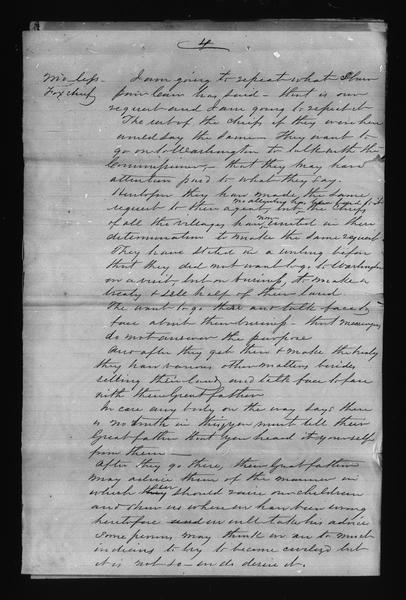 4
I am going to repeat what
has said - that is our
request and I am going to repeat it
The rest of the chiefs if they were here
would say the same - They want to
go on to Washington to talk with the
Commissioner, - that they may have
attention paid to what they say.
Heretofore they have made the same
request to their agent but the chiefs
of all the villages have now united in their
determination to make the same request.
They have stated in a writing before
that they did not want to go to Washington
on a visit, but on business, to make a
treaty & sell half of their land.
We want to go there and talk face to
face about their business - that messengers
do not answer the purpose
And after they get there & make the treaty
they have various other matters besides
selling their land, and talk face to face
with their Great father
In case any body on the way says there
is no truth in this you must tell their
Great father that you heard it yourself
from them -
After they go there, their Great father
may advise them of the manner in
which should raise our children
and show us where we have been wrong
heretofore and we will take his advice
Some persons may think we are to much
indians to try to become civilized but
it is not so - we do desire it.